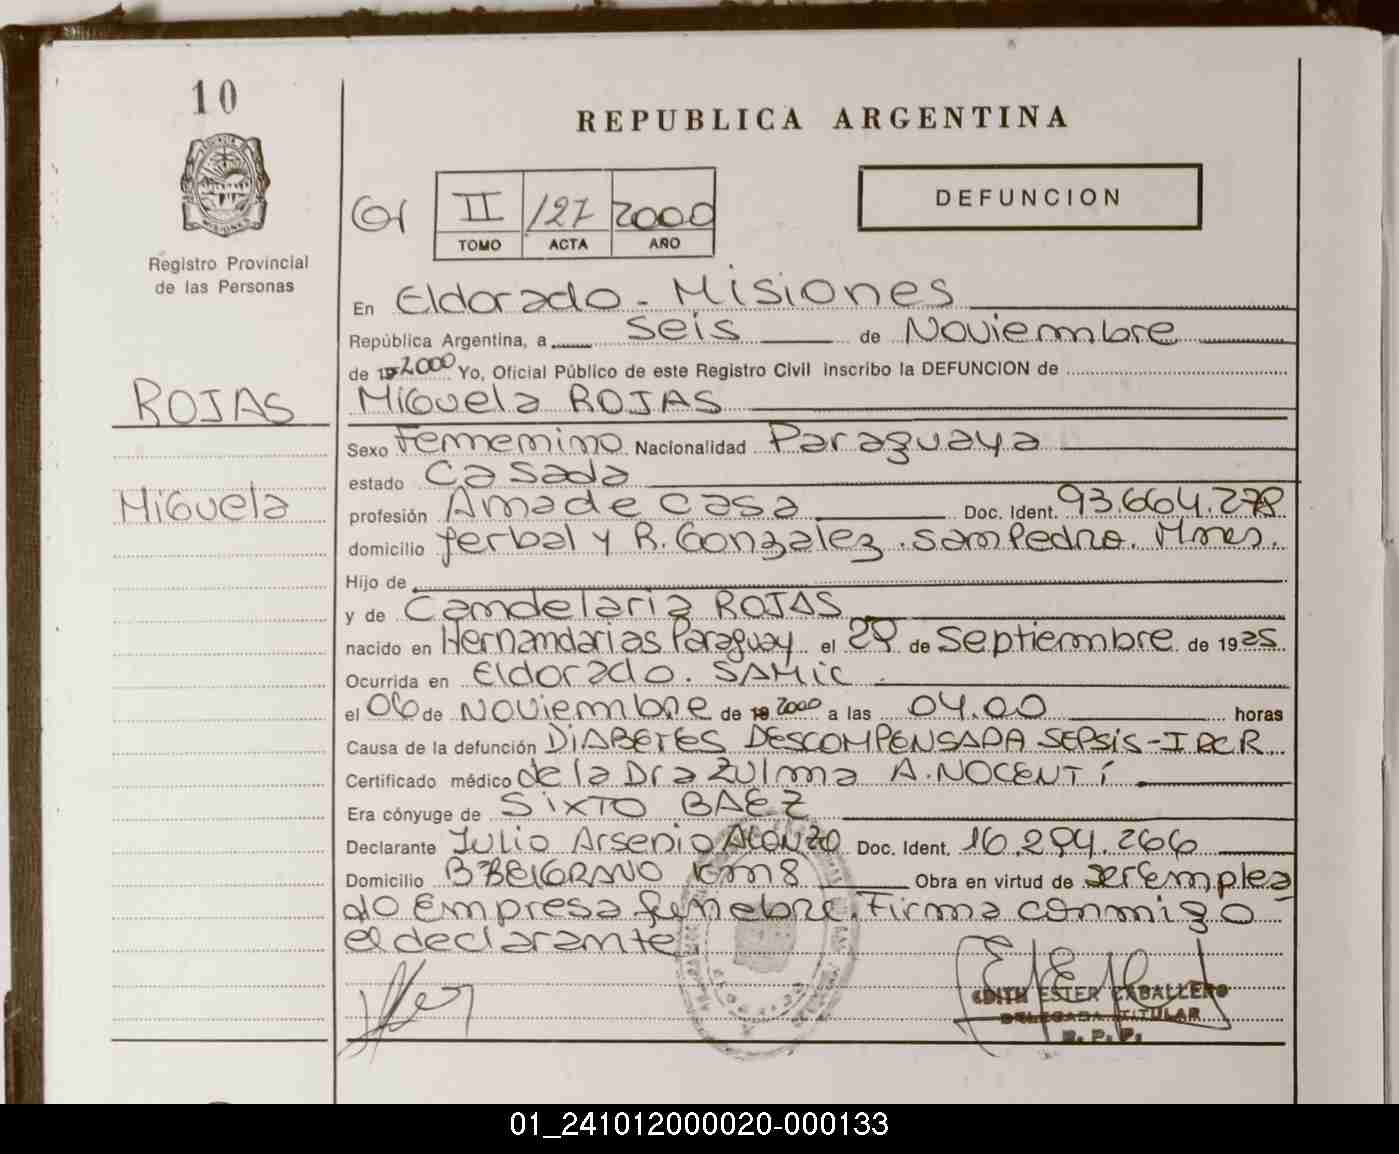 10
REPUBLICA ARGENTINA
MISIONES
Registro Provincial
de las Personas
II 127 2000
TOMO ACTA AÑO
DEFUNCION
En Eldorado - Misiones
República Argentina, a seis de Noviembre
de 19 2000 Yo, Oficial Público de este Registro Civil inscribo la DEFUNCION de
ROJAS
Miguela ROJAS
Sexo Femenino Nacionalidad Paraguaya
estado Casada
Miguela
profesión Ama de casa Doc. Ident. 93.664.278
domicilio Yerbal y R. Gonzalez . San Pedro. Mnes.
Hijo de
y de Candelaria ROJAS
nacido en Hernandarias Paraguay el 29 de Septiembre de 1925
Ocurrida en Eldorado. SAMiC
el 06 de Noviembre de 19 2000 a las 04.00 horas
Causa de la defunción DiABETES DESCOMPENSADA SEPSiS - I RCR
Certificado médico de la Dra Zulma A. NOCENTi
Era cónyuge de SiXTO BAEZ
Declarante Julio Arsenio ALONZO Doc. Ident. 16.294.266
Domicilio Bº BELGRANO Km 8 Obra en virtud de ser emplea
do Empresa funebre. Firma conmigo
el declarante
EDITH ESTER CABALLERO
DELEGADA TITULAR
R. P. P.
01_241012000020-000133